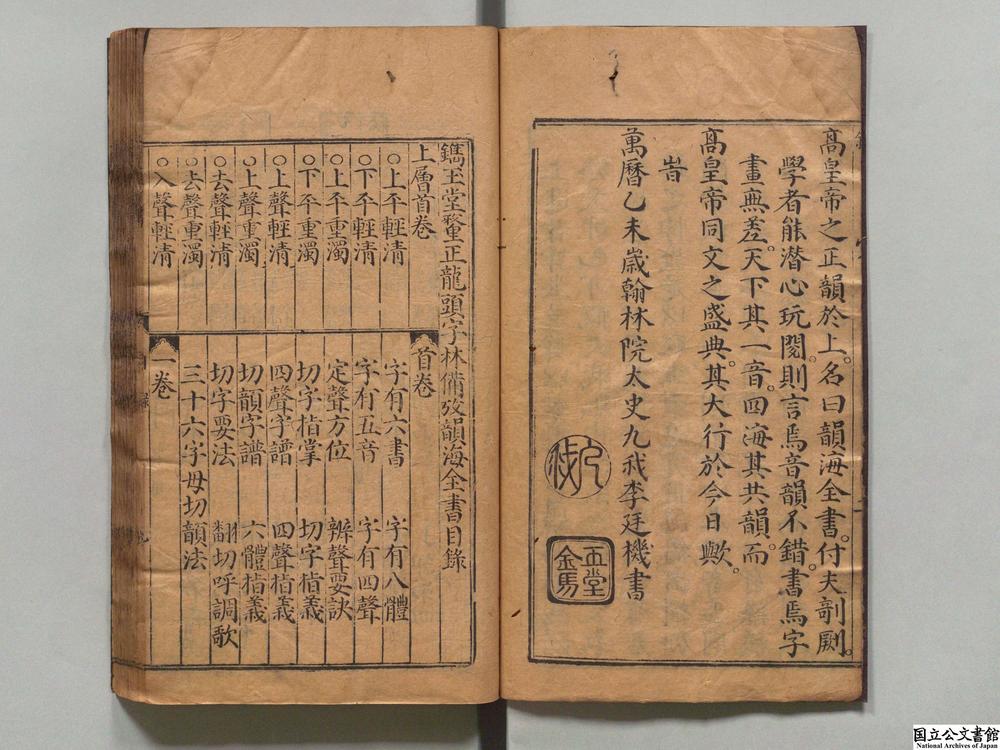 高皇帝之正韻於上。名曰韻海全書。付夫剞劂。
學者能潛心玩閱。則言焉音韻不錯書焉字
畫無差。天下其一音。四海其共韻。而
高皇帝同文之盛典。其大行於今日歟。
旹
萬曆乙未歲翰林院太史九我李廷機書
九我
玉堂金馬
鐫玉堂釐正龍頭字林備攷韻海全書目錄
上層首卷
○上平輕清
○下平輕清
○上平重濁
○下平重濁
○上聲輕清
○上聲重濁
○去聲輕清
○去聲重濁
○入聲輕清
首卷
字有六書 字有八體
字有五音 字有四聲
定聲方位 辨聲要訣
切字指掌 切字指義
四聲字譜 四聲指義
切韻字譜 六體指義
切字要法 翻切呼調歌
三十六字母切韻法
一卷
国立公文書館
National Archives of Japan